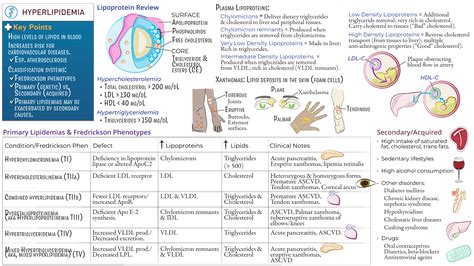 HYPERLIPIDEMIA
Key Points
HIGH LEVELS OF LIPIDS IN BLOOD
INCREASES RISK FOR
CARDIOVASCULAR DISEASES,
ESP. ATHEROSCLEROSIS
CLASSIFICATION SYSTEMS:
FREDRICKSON PHENOTYPES
PRIMARY (GENETIC) VS.
SECONDARY (ACQUIRED)
PRIMARY LIPIDEMIAS MAY BE
EXACERBATED BY SECONDARY
CAUSES.
Lipoprotein Review
SURFACE
APOLIPOPROTEIN
PHOSPHOLIPIDS
FREE CHOLESTEROL
CORE
TRIGLYCERIDES &
CHOLESTERYL
ESTERS (CE)
Hypercholesterolemia
• TOTAL CHOLESTEROL > 200 MG/DL
• LDL > 130 MG/DL
• HDL < 40 MG/DL
Hypertriglyceridemia
• TRIGLYCERIDES > 150 MG/DL
PLASMA LIPOPROTEINS:
Chylomicrons * Deliver dietary triglycerides
& cholesterol to liver and peripheral tissues.
Chylomicron remnants * Produced when
triglycerides are removed from chylomicrons.
Very Low Density Lipoproteins * Made in liver;
Rich in triglycerides.
Intermediate Density Lipoproteins *
Produced when triglycerides are removed
from VLDL; rich in cholesterol ("VLDL remnants").
Low Density Lipoproteins * Additional
triglyceride removal, very rich in cholesterol.
("Bad" cholesterol).
High Density Lipoproteins * Reverse cholesterol
transport (from tissues to liver); multiple
anti-atherogenic properties ("Good" cholesterol).
LDL-C
Plaque obstructing
blood flow in artery
HDL-C
XANTHOMAS: LIPID DEPOSITS IN THE SKIN (FOAM CELLS)
Tuberous
Joints
Eruptive
Buttocks,
Extensor
surfaces.
Plane
Xanthelasma
Palmar
Tendinous
Primary Lipidemias & Fredrickson Phenotypes
Condition/Fredrickson Phen
Defect
↑ Lipoproteins
↑ Lipids
Clinical Notes
HYPERCHYLOMICRONEMIA (TI)
Deficiency in lipoprotein
lipase or altered ApoC2
Chylomicrons
Triglycerides
(> 500)
Acute pancreatitis,
Eruptive xanthomas, lipemia retinalis
HYPERCHOLESTEROLEMIA (TIIA)
Deficient LDL receptor
LDL
Cholesterol
Heterozygous vs. Homozygous
Premature ASCVD,
Tendon xanthomas, Corneal arcus
COMBINED HYPERLIPIDEMIA (TIIB)
Fewer LDL receptors/
increased ApoB.
LDL & VLDL
Triglycerides &
Cholesterol
Premature ASCVD
DYSBETALIPOPROTEINEMIA
(AKA HYPERLIPOPROTEINEMIA TIII)
Deficient Apo E-2
synthesis.
Chylomicron remnants
& IDL
Triglycerides &
Cholesterol
ASCVD, Palmar xanthoma,
tuberoeruptive xanthomas of
elbows/knees
HYPERTRIGLYCERIDEMIA (TIV)
Increased VLDL prod./
Decreased excretion.
VLDL
Triglycerides
Acute pancreatitis, ASCVD
MIXED HYPERTRIGLYCERIDEMIA
(TV)
Increased VLDL prod./
Decreased LPL.
VLDL & Chylomicrons
Triglycerides &
Cholesterol
Acute pancreatitis,
eruptive xanthomas, ASCVD
Secondary/Acquired
• High intake of saturated
fat, cholesterol, trans fats.
• Sedentary lifestyles
• High alcohol consumption
• Other disorders:
Diabetes mellitus
Chronic kidney disease,
nephrotic syndrome
Hypothyroidism
Cholestatic liver diseases
Cushing syndrome
• Drugs:
Oral contraceptives,
beta-blockers
Diuretics, antivirals